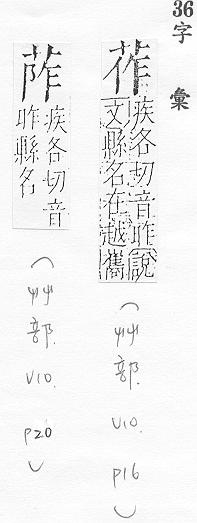 36字彙
莋
疾各切音昨說
文縣名在越巂
(艸部 V10. P16)
疾各切音
昨縣名
(艸部 V10. P20)